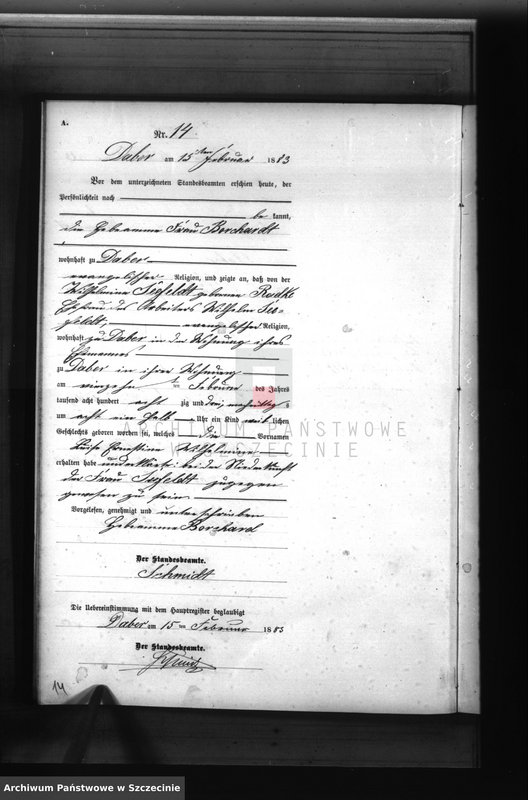 A.
Nr. 14
Daber am 15ten Februar 1883
Vor dem unterzeichneten Standesbeamten erschien heute, der
Persönlichkeit nach
be kannt,
die Hebeamme Frau Borchardt
wohnhaft zu Daber
evangelischer Religion, und zeigte an, daß von der
Wilhelmine Seefeldt geborenen Radtke
Ehefrau des Arbeiters Wilhelm See-
feldt, evangelischer Religion,
wohnhaft zu Daber in der Wohnung ihres
Ehemannes
zu Daber in ihrer Wohnung
am vierzehnten Februar des Jahres
tausend acht hundert acht zig und drei, nachmittags
um acht ein halb Uhr ein Kind weib lichen
Geschlechts geboren worden sei, welches die Vornamen
Luise Ernestine Wilhelmine
erhalten habe und erklärte: bei der Niederkunft
der Frau Seefeldt zugegen
gewesen zu sein
Vorgelesen, genehmigt und unterschrieben
Hebeamme Borchard
Der Standesbeamte.
Schmidt
Die Uebereinstimmung mit dem Hauptregister beglaubigt
Daber am 15ten Februar 1883
Der Standesbeamte.
Schmidt
14
ARCHIWUM PAŃSTWOWE
W SZCZECINIE
Archiwum Państwowe w Szczecinie